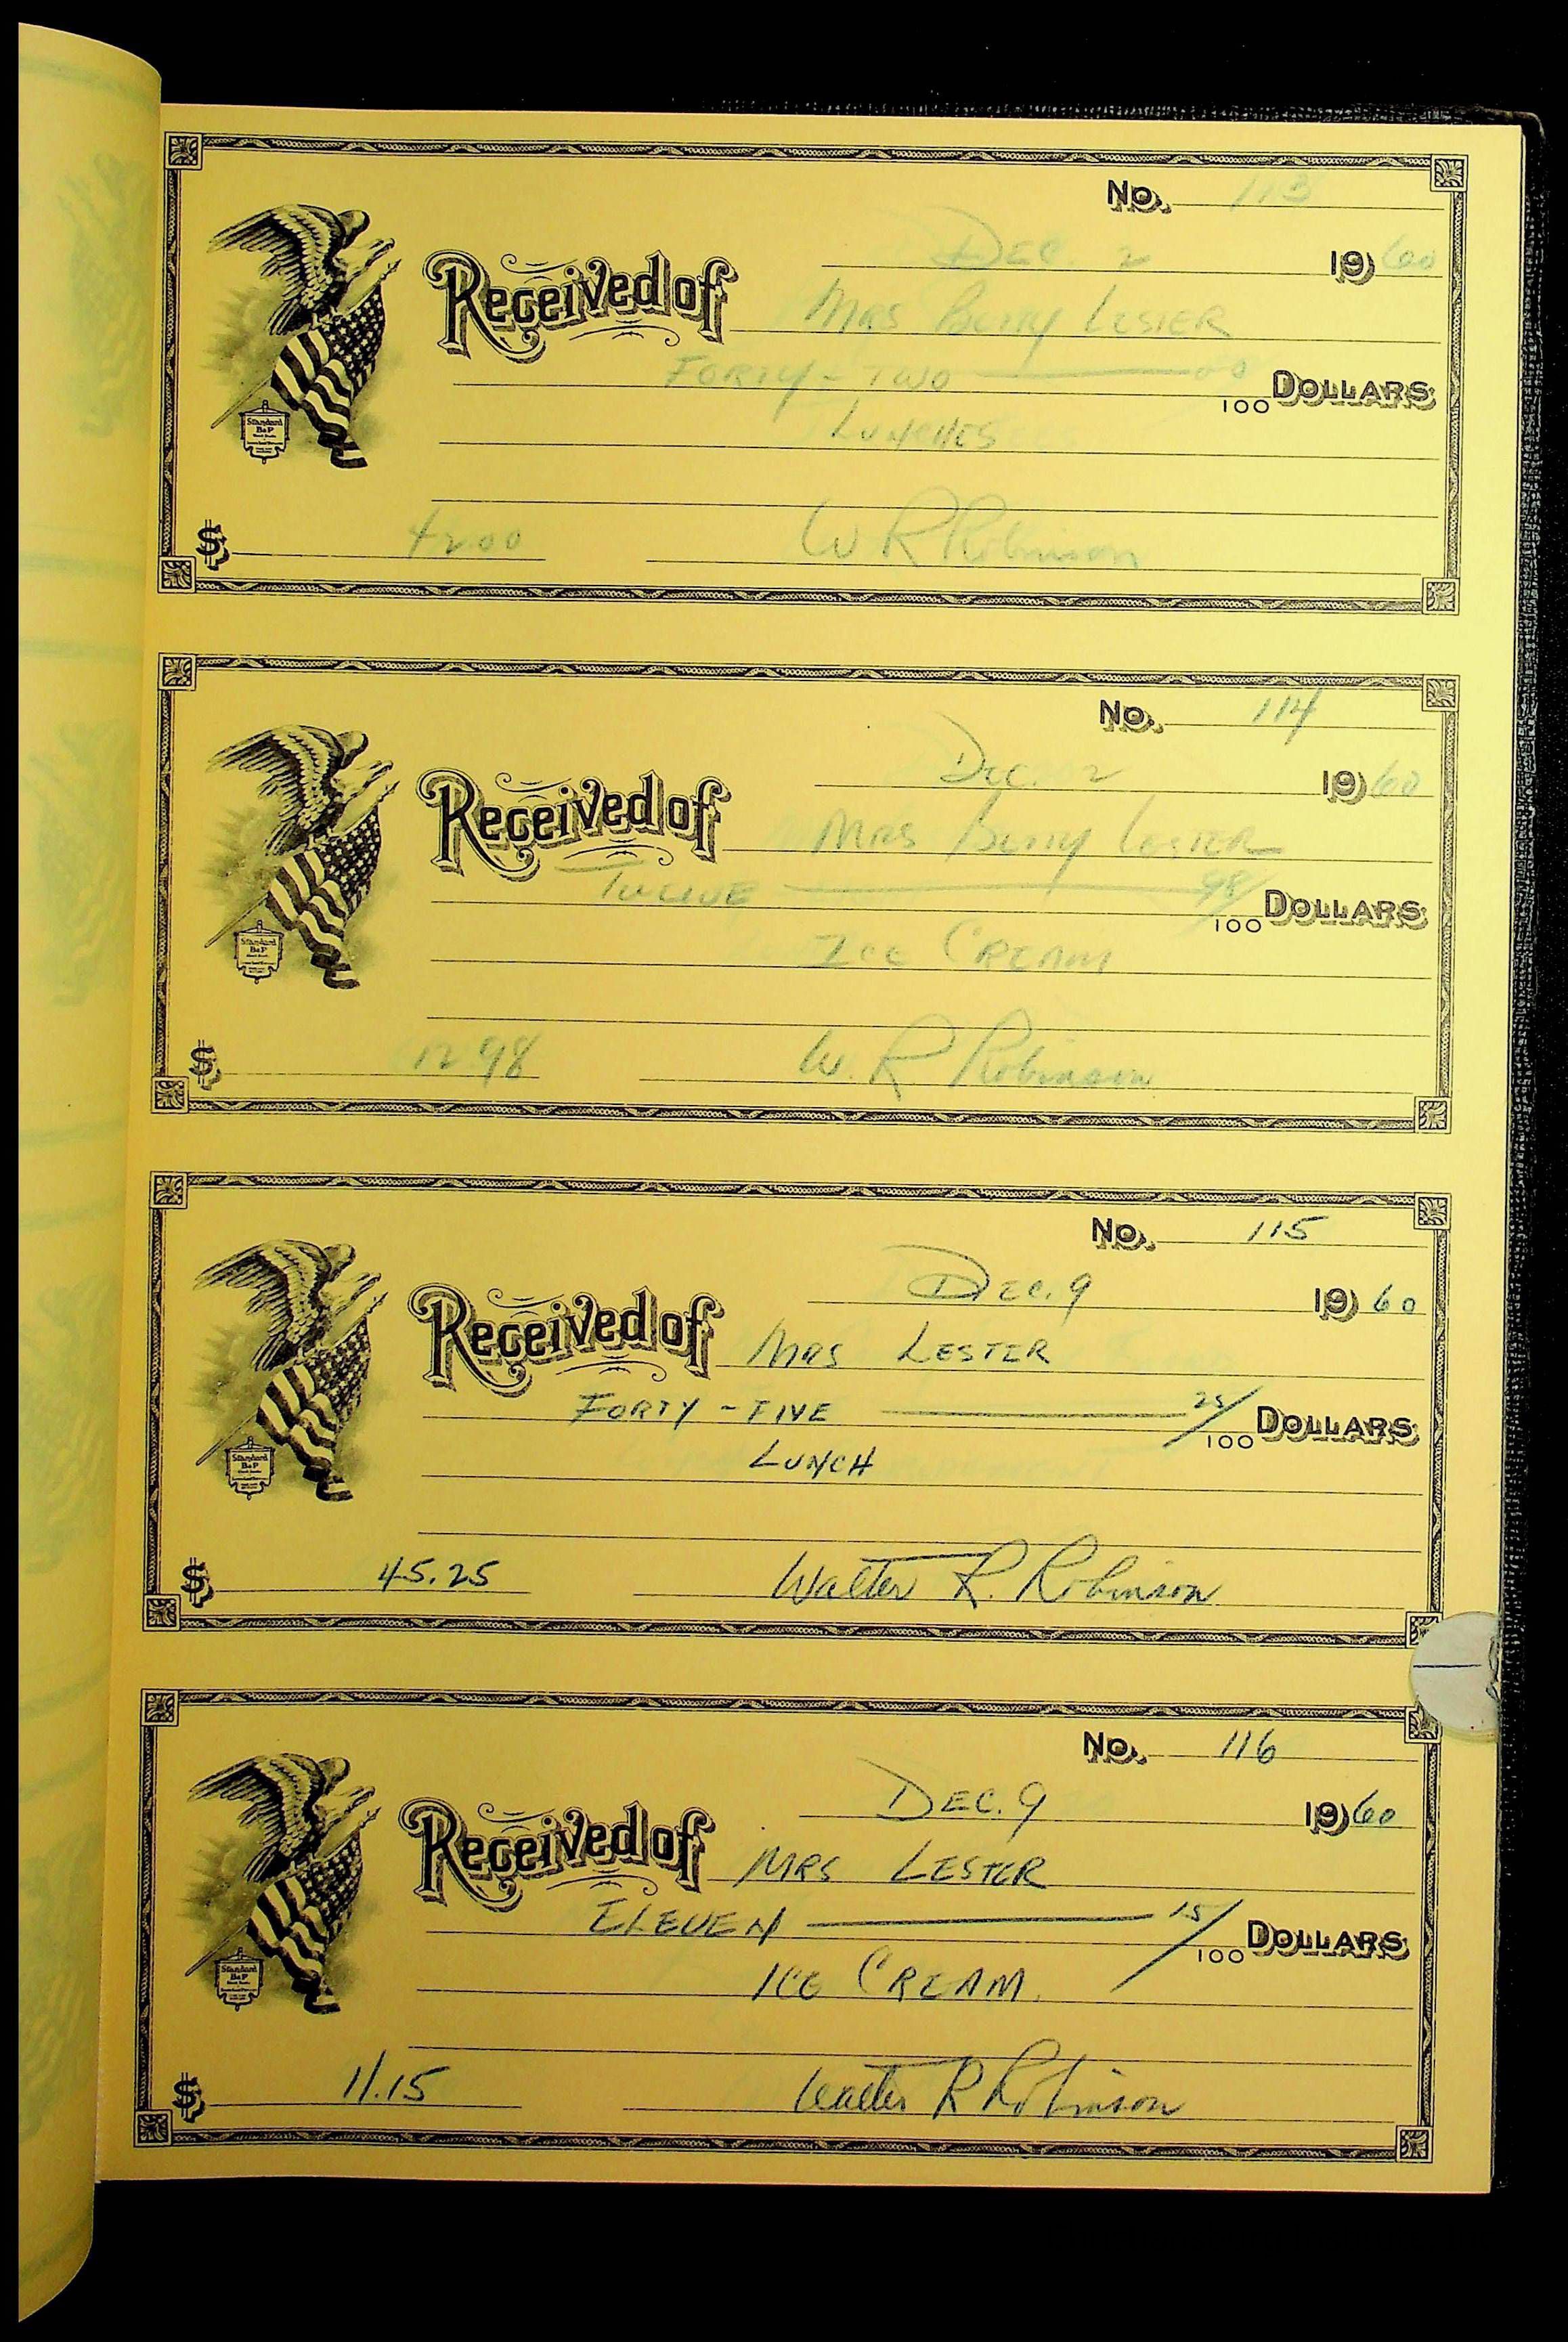 No. 113
DEC. 2 1960
Received of MRS Betty LESTER
FORTY-TWO 00
100 DOLLARS
LUNCHES
$ 42.00 W R Robinson
No. 114
Dec. 2 1960
Received of MRS Betty LESTER
TWELVE 98/
100 DOLLARS
ICE CREAM
$ 12.98 W. R Robinson
No. 115
DEC. 9 1960
Received of MRS LESTER
FORTY-FIVE 25/
100 DOLLARS
LUNCH
$ 45.25 Walter R. Robinson
No. 116
DEC. 9 1960
Received of MRS LESTER
ELEVEN 15/
100 DOLLARS
ICE CREAM.
$ 11.15 Walter R Robinson